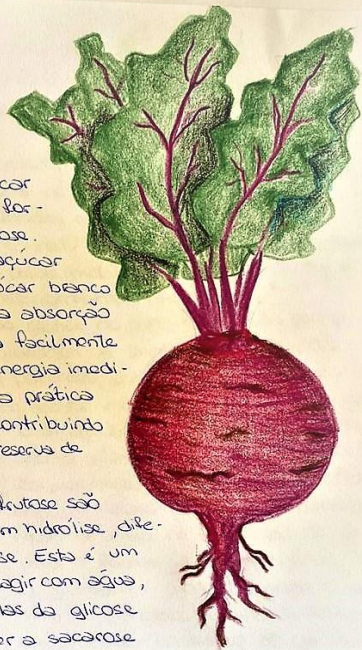 car
for-
ose.
açúcar
úcar branco
a absorção
facilmente
nergia imedi-
a prática
contribuindo
reserva de
frutose são
m hidrólise, dife-
se. Esta é um
agir com água,
las da glicose
er a sacarose